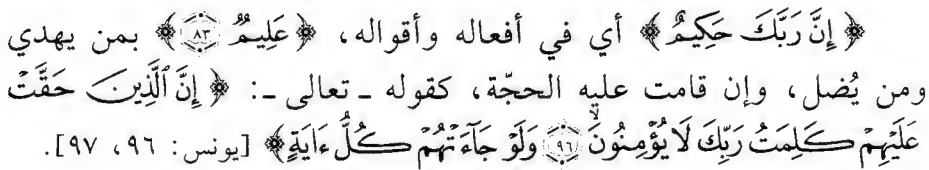 ﴿ إِنَّ رَبَّكَ حَكِيمٌ﴾ أي في أفعاله وأقواله، ﴿عَلِيمٌ ٨٣﴾ بمن يهدي
ومن يُضل، وإن قامت عليه الحجّة، كقوله ـ تعالى ـ: ﴿ إِنَّ ٱلَّذِينَ حَقَّتْ
عَلَيْهِمْ كَلِمَتُ رَبِّكَ لَا يُؤْمِنُونَ ٩٦ وَلَوْ جَآءَتْهُمْ كُلُّ ءَايَةٍ﴾ [يونس: ٩٦، ٩٧].